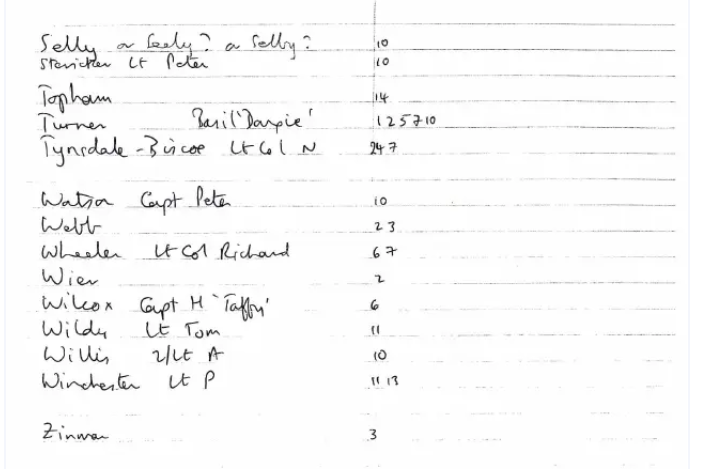 Selly or Seely? or Selby? 10
Stericker Lt Peter 10
Topham 14
Turner Basil 'Dampie' 1 2 5 7 10
Tyndale-Biscoe Lt Col N 2 4 7
Watson Capt Peter 10
Webb 2 3
Wheeler Lt Col Richard 6 7
Wier 2
Wilcox Capt H 'Taffy' 6
Wildy Lt Tom 11
Willis 2/Lt A 10
Winchester Lt P 11 13
Zinwar 3